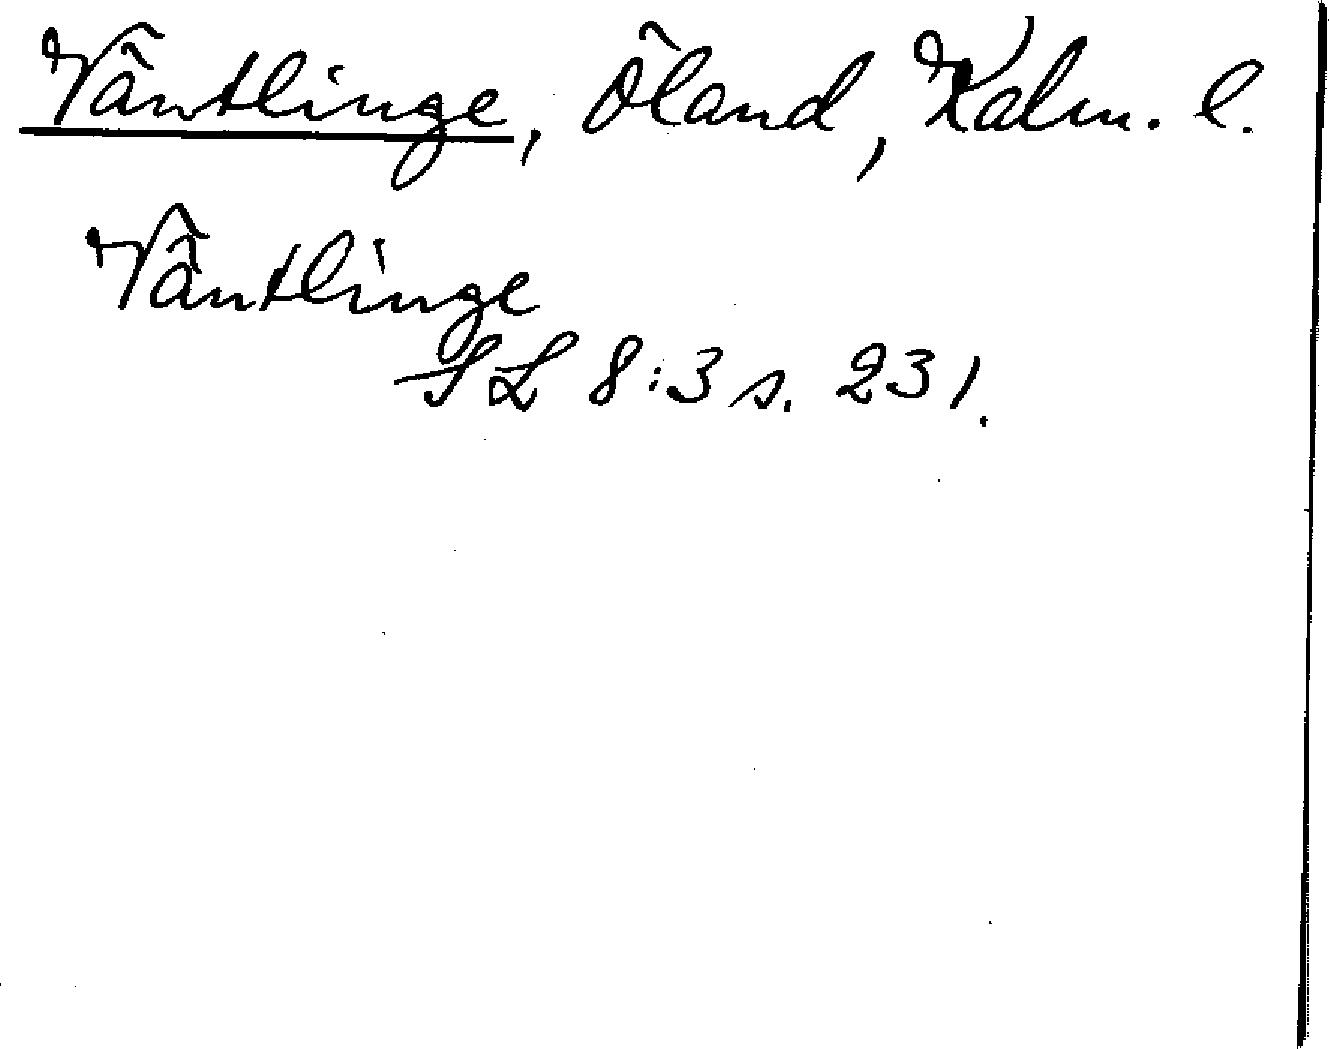 Väntlinge, Öland, Kalm. l.
Väntlinge
SL 8:3 s. 231.